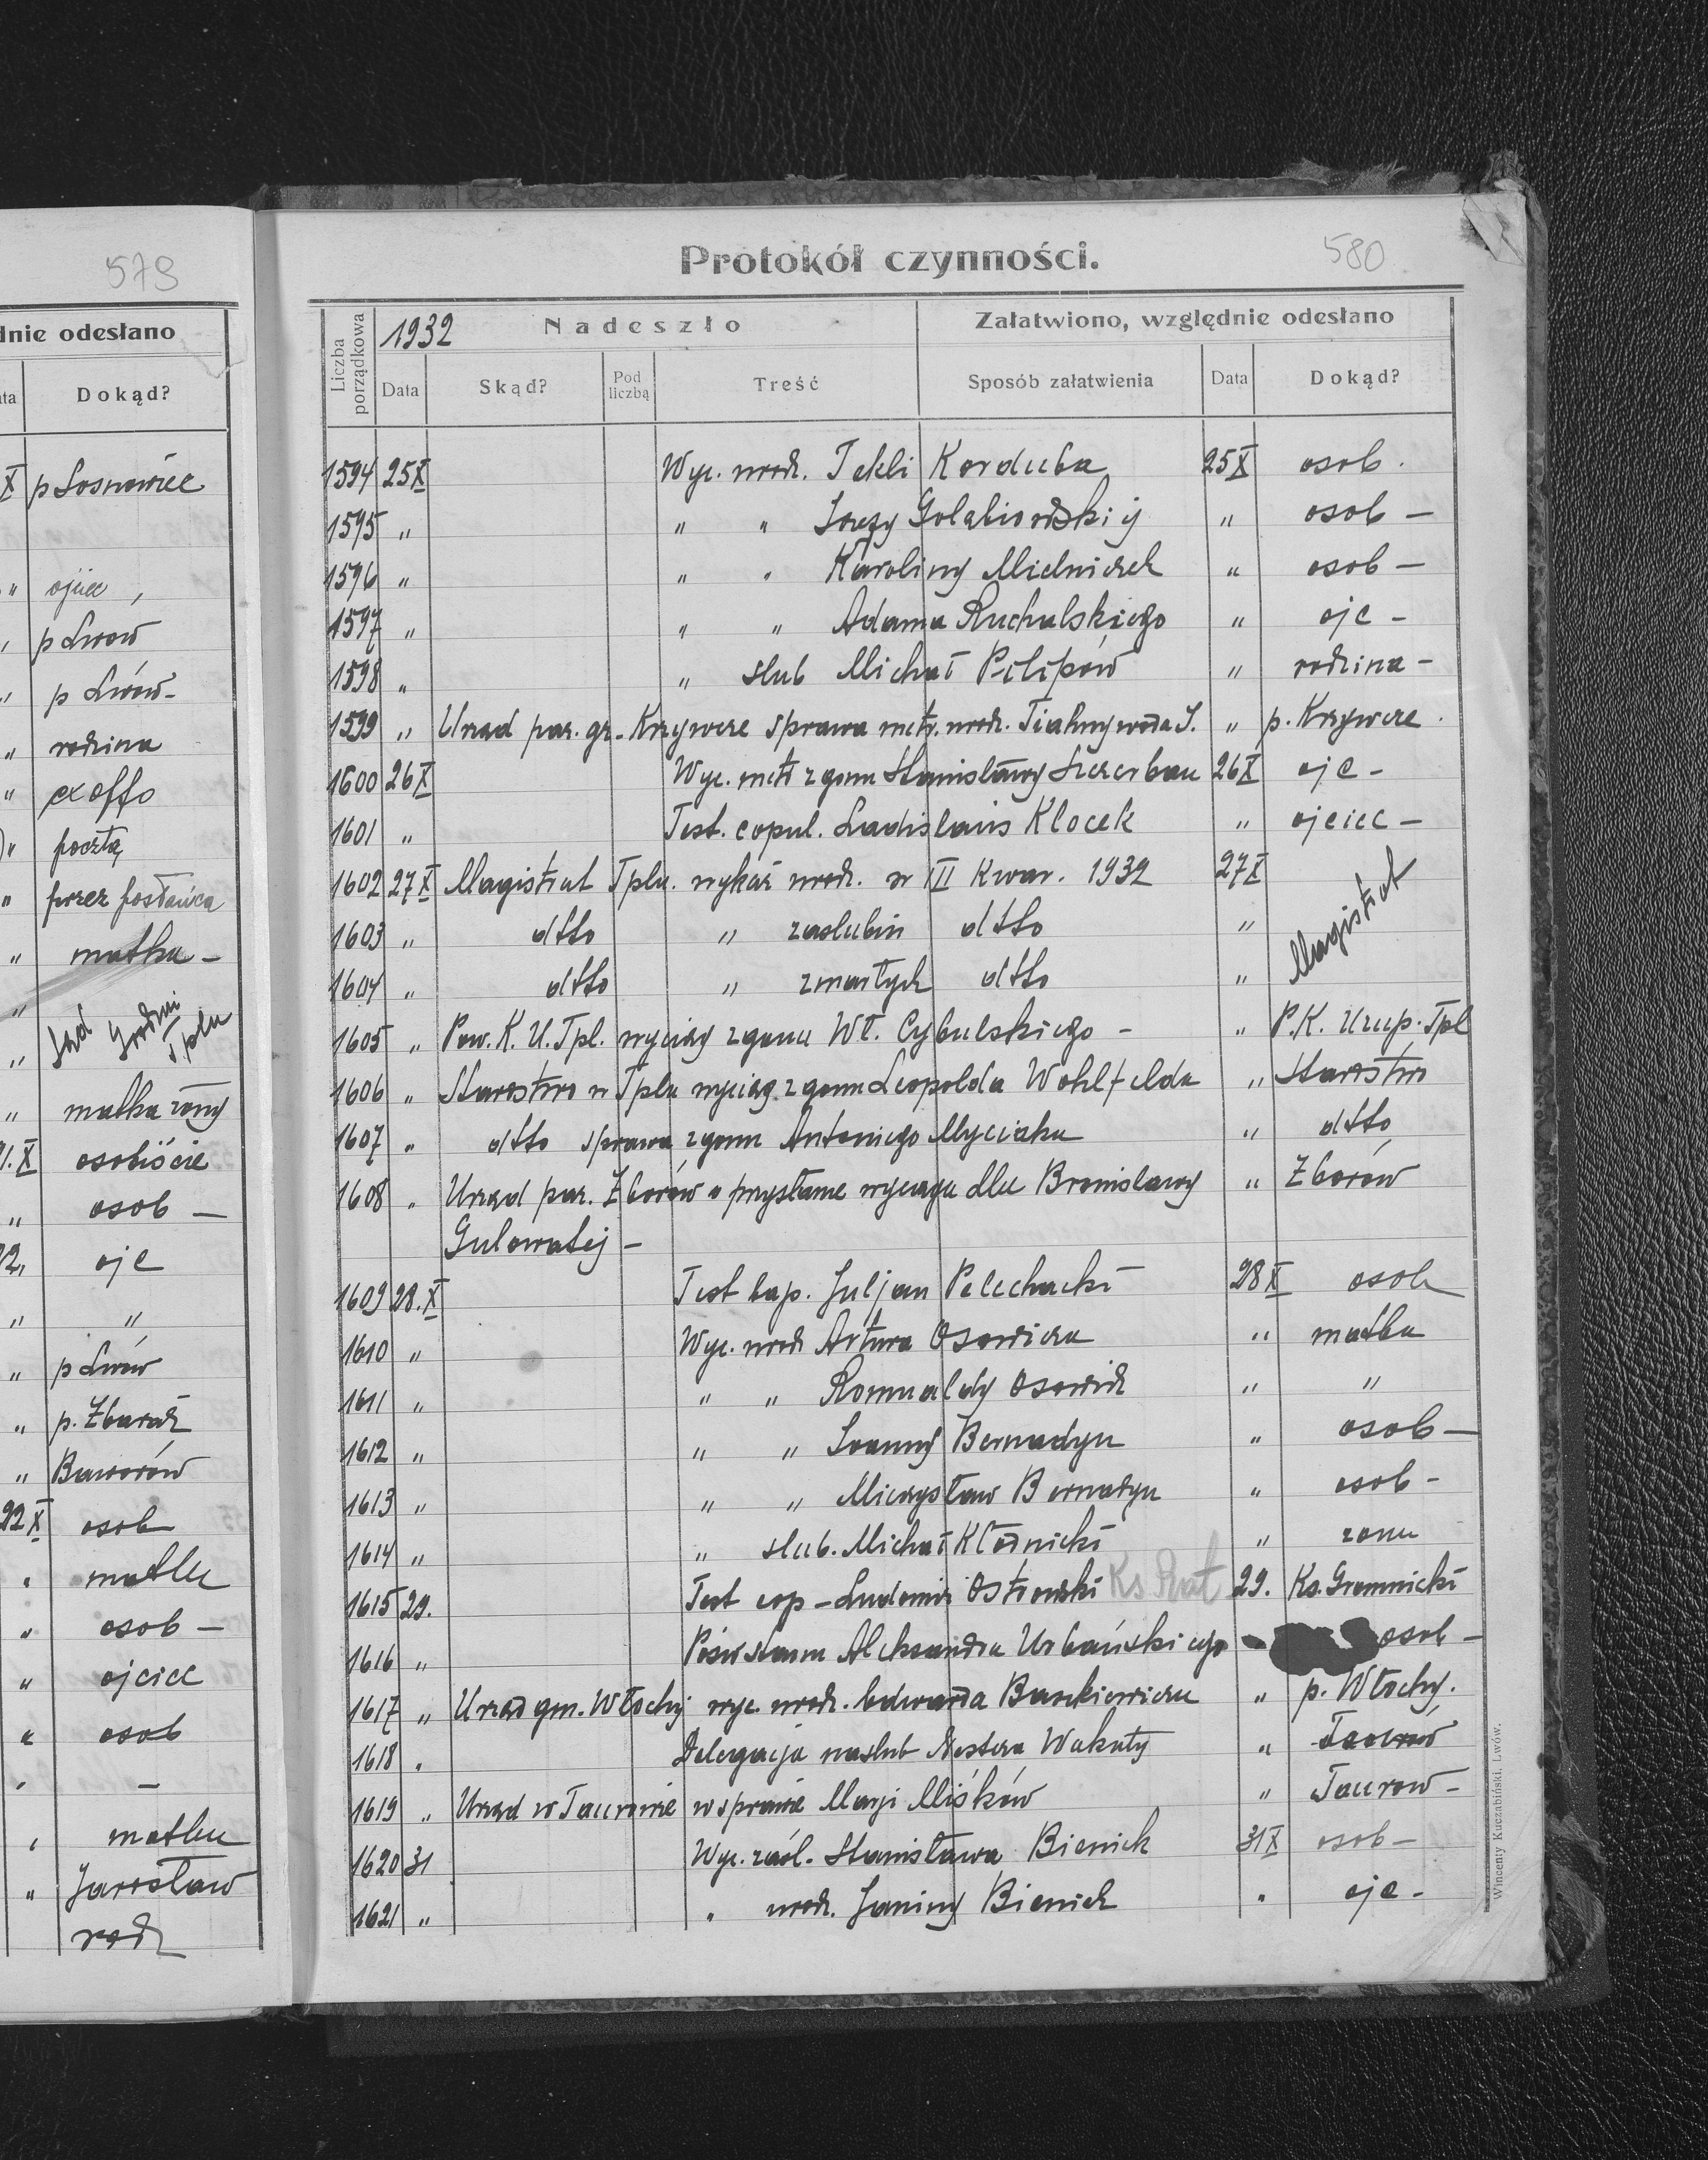 579
dnie odesłano
ata Dokąd?
X p Sosnowiec
" ojiec ,
" p Lwow
" p Lwów-
" rodzina
" ex offo
" pocztą
" przez posłańca
" matka -
"
" Sąd Grodzki Tplu
" matka żony
21.X osobiście
" osob -
22, ojc
" "
" p Lwów
" p. Zbaraż
" Baworów
22 X osob
" matka
" osob -
" ojciec
" osob
" -
" matka
" Jarosław
rodz
Protokół czynności.
580
Liczba porządkowa
1932 Nadeszło
Załatwiono, względnie odesłano
Data Skąd? Pod liczbą Treść Sposób załatwienia Data Dokąd?
1594 25X Wyc. urodz. Tekli Korduba 25X osob.
1595 " " " Gołąbiowskiij " osob -
1596 " " " Karoliny Mielniczek " osob -
1597 " " " Adama Ruchalskiego " ojc -
1598 " " slub Michał Pilipów " rodzina -
1599 " Urząd par. gr. Krzywcze sprawa metr. urodz. S. " p. Krzywcze.
1600 26X Wyc. metr zgonu Stanisławy Szczerban 26X ojc -
1601 " Test. copul. Ladislaus Klocek " ojciec -
1602 27X Magistrat Tplu. wykaz urodz. w III Kwar. 1932 27X Magistrat
1603 " dtto " zaslubin dtto "
1604 " dtto " zmarłych dtto "
1605 " Pow. K. U. Tpl. wyciąg zgonu Wł. Cybulskiego - " P.K. Uzup. Tpl
1606 " Starostwo w Tplu wyciąg zgonu Leopolda Wohlfelda " Starostwo
1607 " dtto sprawa zgonu Antoniego Myciaka " dtto
1608 " Urząd par. Zborów o przysłanie wyciągu dla Bronisławy " Zborów
Gulowatej -
1609 28.X Test bap. Juljan Pelechacki 28X osob
1610 " Wyc. urodz Artura Osowicza " matka
1611 " " " Romualdy Osowicz " "
1612 " " " Joanny Bernadyn " osob -
1613 " " " Mieczysław Bernadyn " osob -
1614 " " slub. Michał Kłodnicki " żona
1615 29. Test cop - Ludomir Ostrowski Ks Rat 29. Ks. Gromnicki
1616 " Pośw stanu Aleksandra Urbańskiego osob -
1617 " Urząd gm. Włochy wyc. urodz. Edwarda Baszkiewicza " p. Włochy.
1618 " Delegacja naslub Nestera Wakuły "
1619 " Urząd w Taurowie w sprawie Marji Miśków " Taurow -
1620 31 Wyc. zaśl. Stanisława Bieniek 31X osob -
1621 " " urodz. Janiny Bieniek " ojc -
Wincenty Kuczabiński, Lwów.